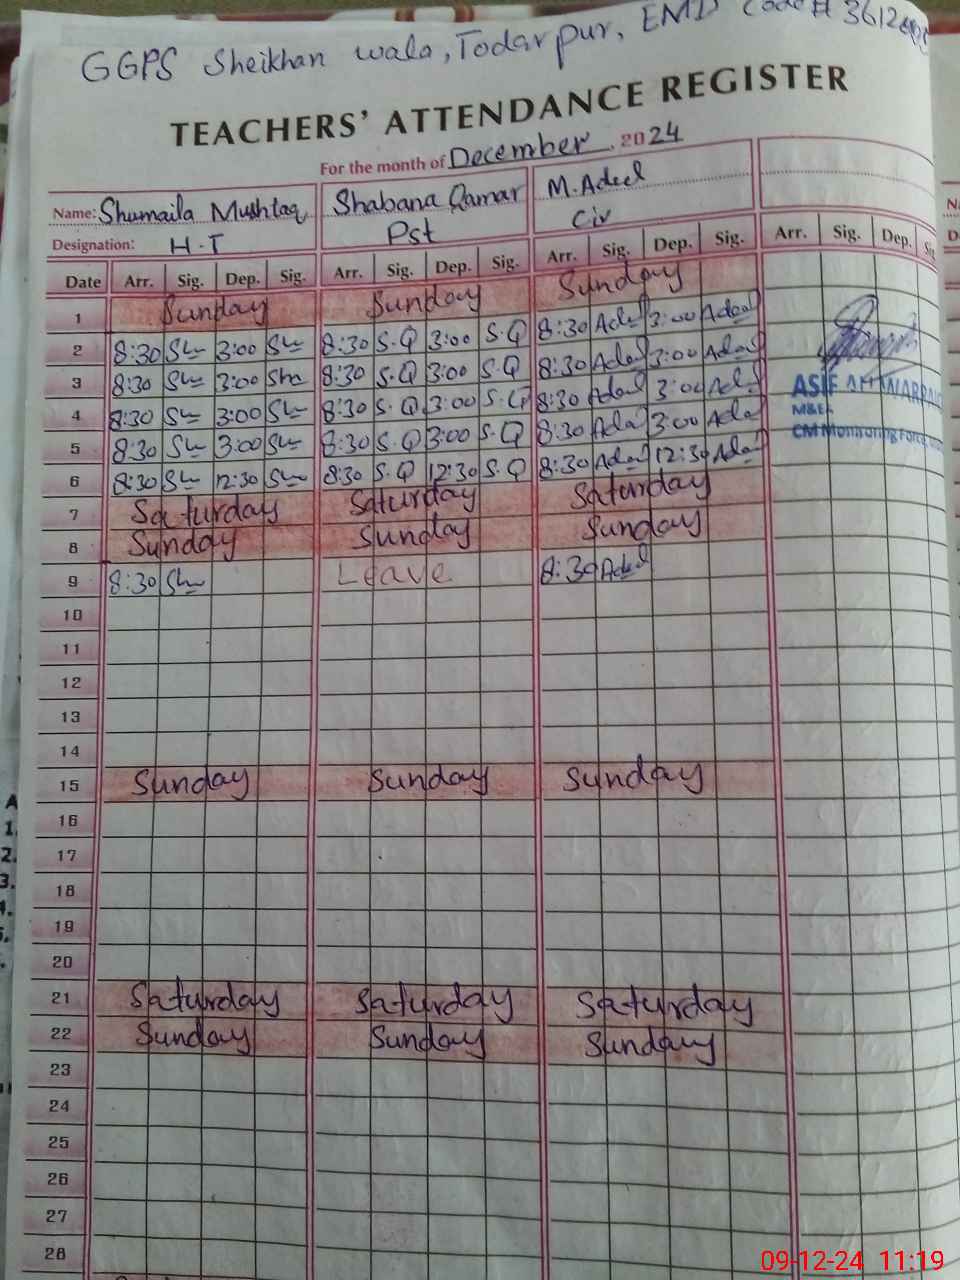 GGPS Sheikhan wala, Todarpur, EMIS Code#
TEACHERS' ATTENDANCE REGISTER
For the month of December 2024
Name: Shumaila Mushtaq Shabana Qamar M.Adeel
Designation: H.T Pst Civ
Date Arr. Sig. Dep. Sig. Arr. Sig. Dep. Sig. Arr. Sig. Dep. Sig. Arr. Sig. Dep.
1 Sunday Sunday Sunday
2 8:30 Sh 3:00 Sh 8:30 S.Q 3:00 S.Q 8:30 Adeel 3:00 Adeel
3 8:30 Sh 3:00 Sha 8:30 S.Q 3:00 S.Q 8:30 Adeel 3:00 Adeel
4 8:30 Sh 3:00 Sh 8:30 S.Q 3:00 S.Q 8:30 Adeel 3:00 Adeel
5 8:30 Sh 3:00 Sh 8:30 S.Q 3:00 S.Q 8:30 Adeel 3:00 Adeel
6 8:30 Sh 12:30 Sh 8:30 S.Q 12:30 S.Q 8:30 Adeel 12:30 Adeel
7 Saturday Saturday Saturday
8 Sunday Sunday Sunday
9 8:30 Sh Leave 8:30 Adeel
10
11
12
13
14
15 Sunday Sunday Sunday
16
17
18
19
20
21 Saturday Saturday Saturday
22 Sunday Sunday Sunday
23
24
25
26
27
28
ASIF
M&EA
CM Monitoring Force
09-12-24 11:19